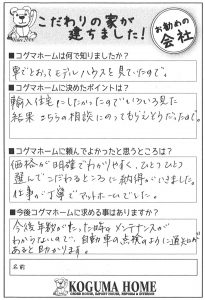 こだわりの家が
建ちました!
お勧めの
会社
■コグマホームは何で知りましたか?
車でとおってモデルハウスを見ていたので。
■コグマホームに決めたポイントは?
輸入住宅にしたかったのでいろいろ見た
結果こちらの相談にのってもらえそうだったので。
■コグマホームに頼んでよかったと思うところは?
価格が明確でわかりやすく、ひとつひとつ
選んでこだわるところに納得がいきました。
仕事が丁寧でアットホームでした。
■今後コグマホームに求める事はありますか?
今後年数がたった時のメンテナンスが
わからないので、自動車の点検のように通知が
あると助かります。
名前
KOGUMA HOME